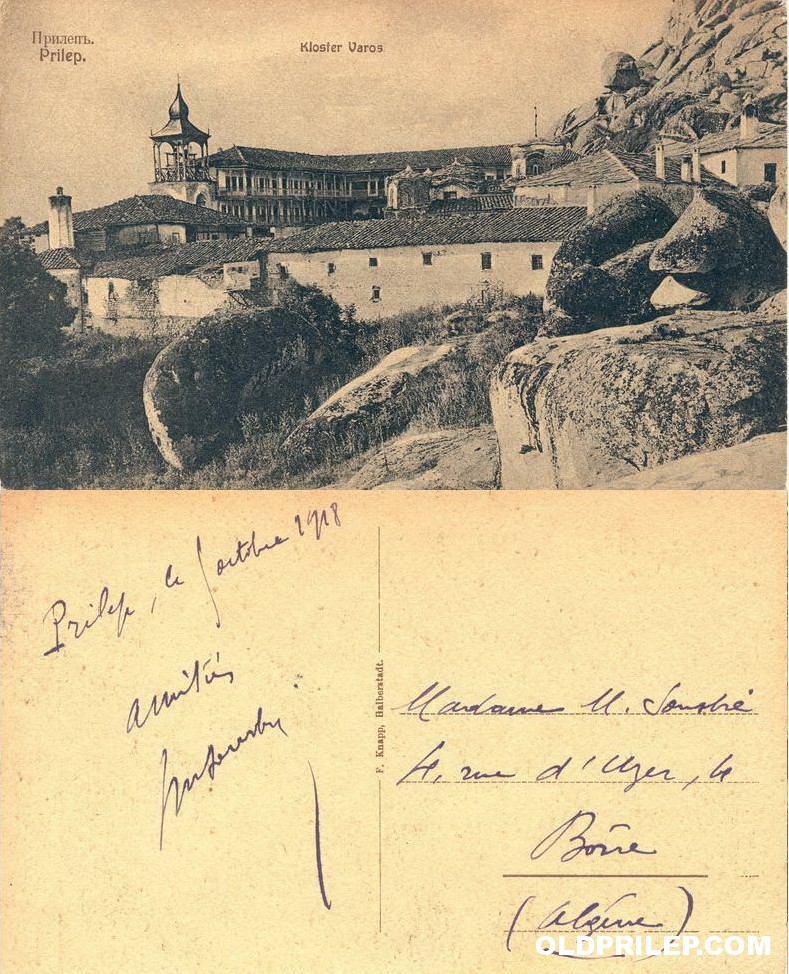 Прилепъ.
Prilep.
Kloster Varos
Prilep, le 5 octobre 1918
amitiés
F. Knapp, Halberstadt.
Madame M.
4, rue d'Uzer, 4
Bône
(Algérie)
OLDPRILEP.COM